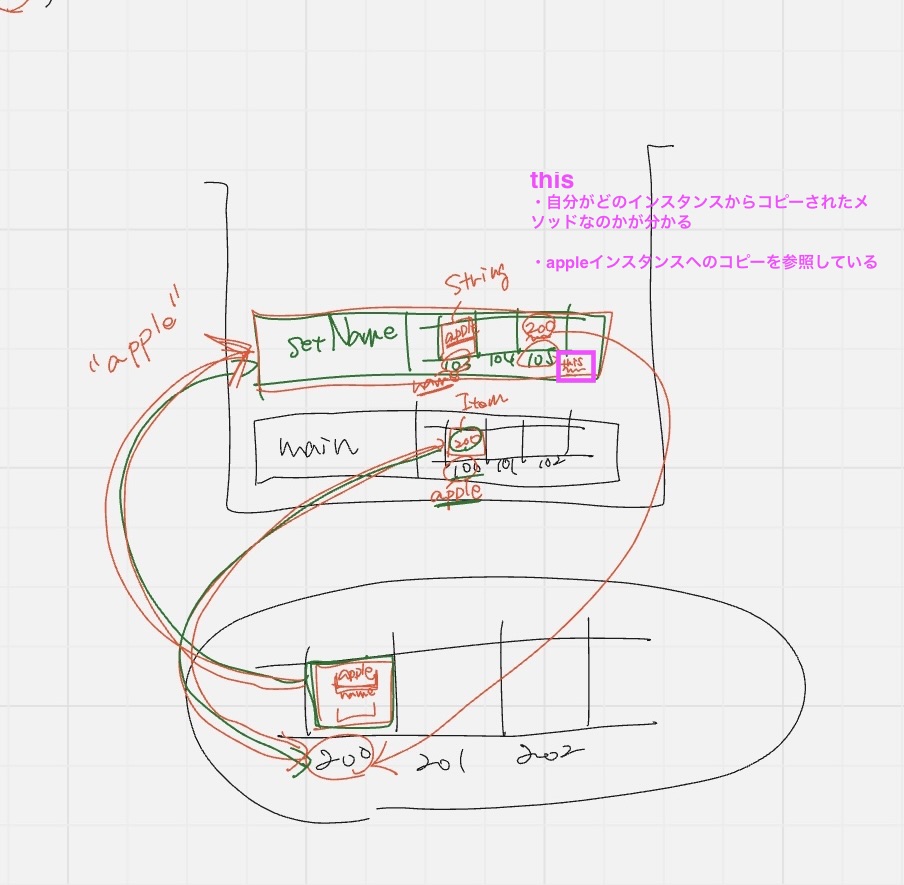 this
・自分がどのインスタンスからコピーされたメ
ソッドなのかが分かる
・appleインスタンスへのコピーを参照している
String
"apple"
setName
apple
200
103
104
105
this
name
Item
main
200
100
101
102
apple
apple
name
200
201
202